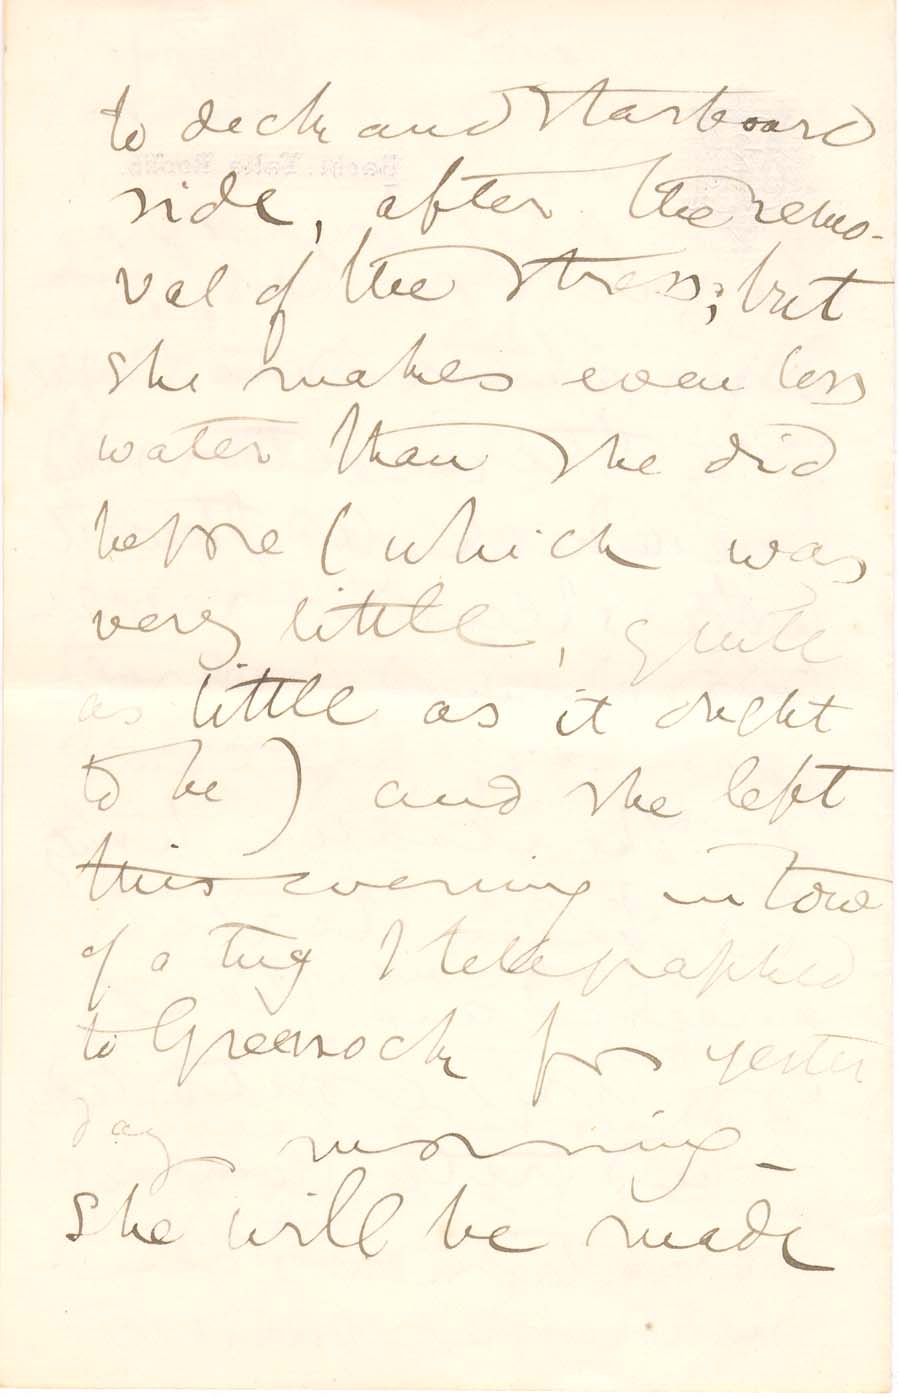 to deck and starboard
side, after the remo-
val of the stress; but
she makes even less
water than she did
before (which was
very little, quite
as little as it ought
to be) and she left
this evening in tow
of a tug I telegraphed
to Greenock for yester
day morning _
She will be made